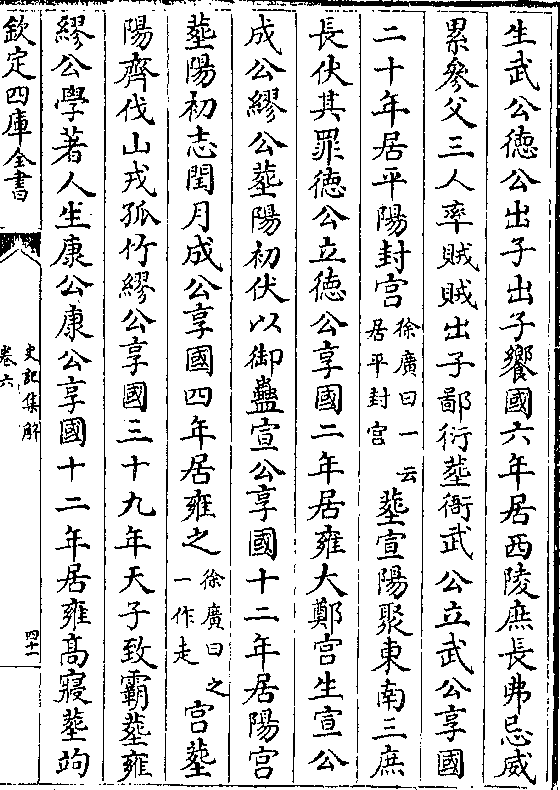 生武公德公出子出子饗國六年居西陵庶長弗忌威
累參父三人率賊賊出子鄙衍塟衙武公立武公享國
二十年居平陽封宮
徐廣曰一云
居平封宮
塟宣陽聚東南三庶
長伏其罪德公立德公享國二年居雍大鄭宮生宣公
成公繆公塟陽初伏以御蠱宣公享國十二年居陽宮
塟陽初志閏月成公享國四年居雍之
徐廣曰之
一作走
宮塟
陽齊伐山戎孤竹繆公享國三十九年天子致霸塟雍
繆公學著人生康公康公享國十二年居雍高寢塟竘
欽定四庫全書
史記集解
卷六
四十一